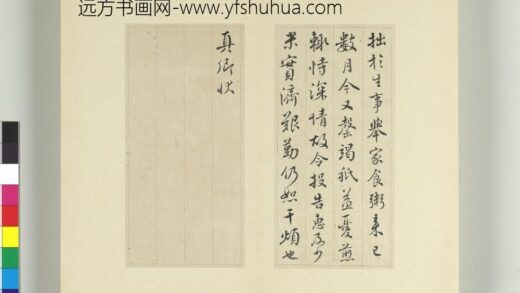 远方书画网-www.yfshuhua.com
拙於生事舉家食粥來已
數月今又罄竭秖益憂煎
輒恃深情故令投告惠及少
米實濟艱勤仍恕干煩也
真卿狀